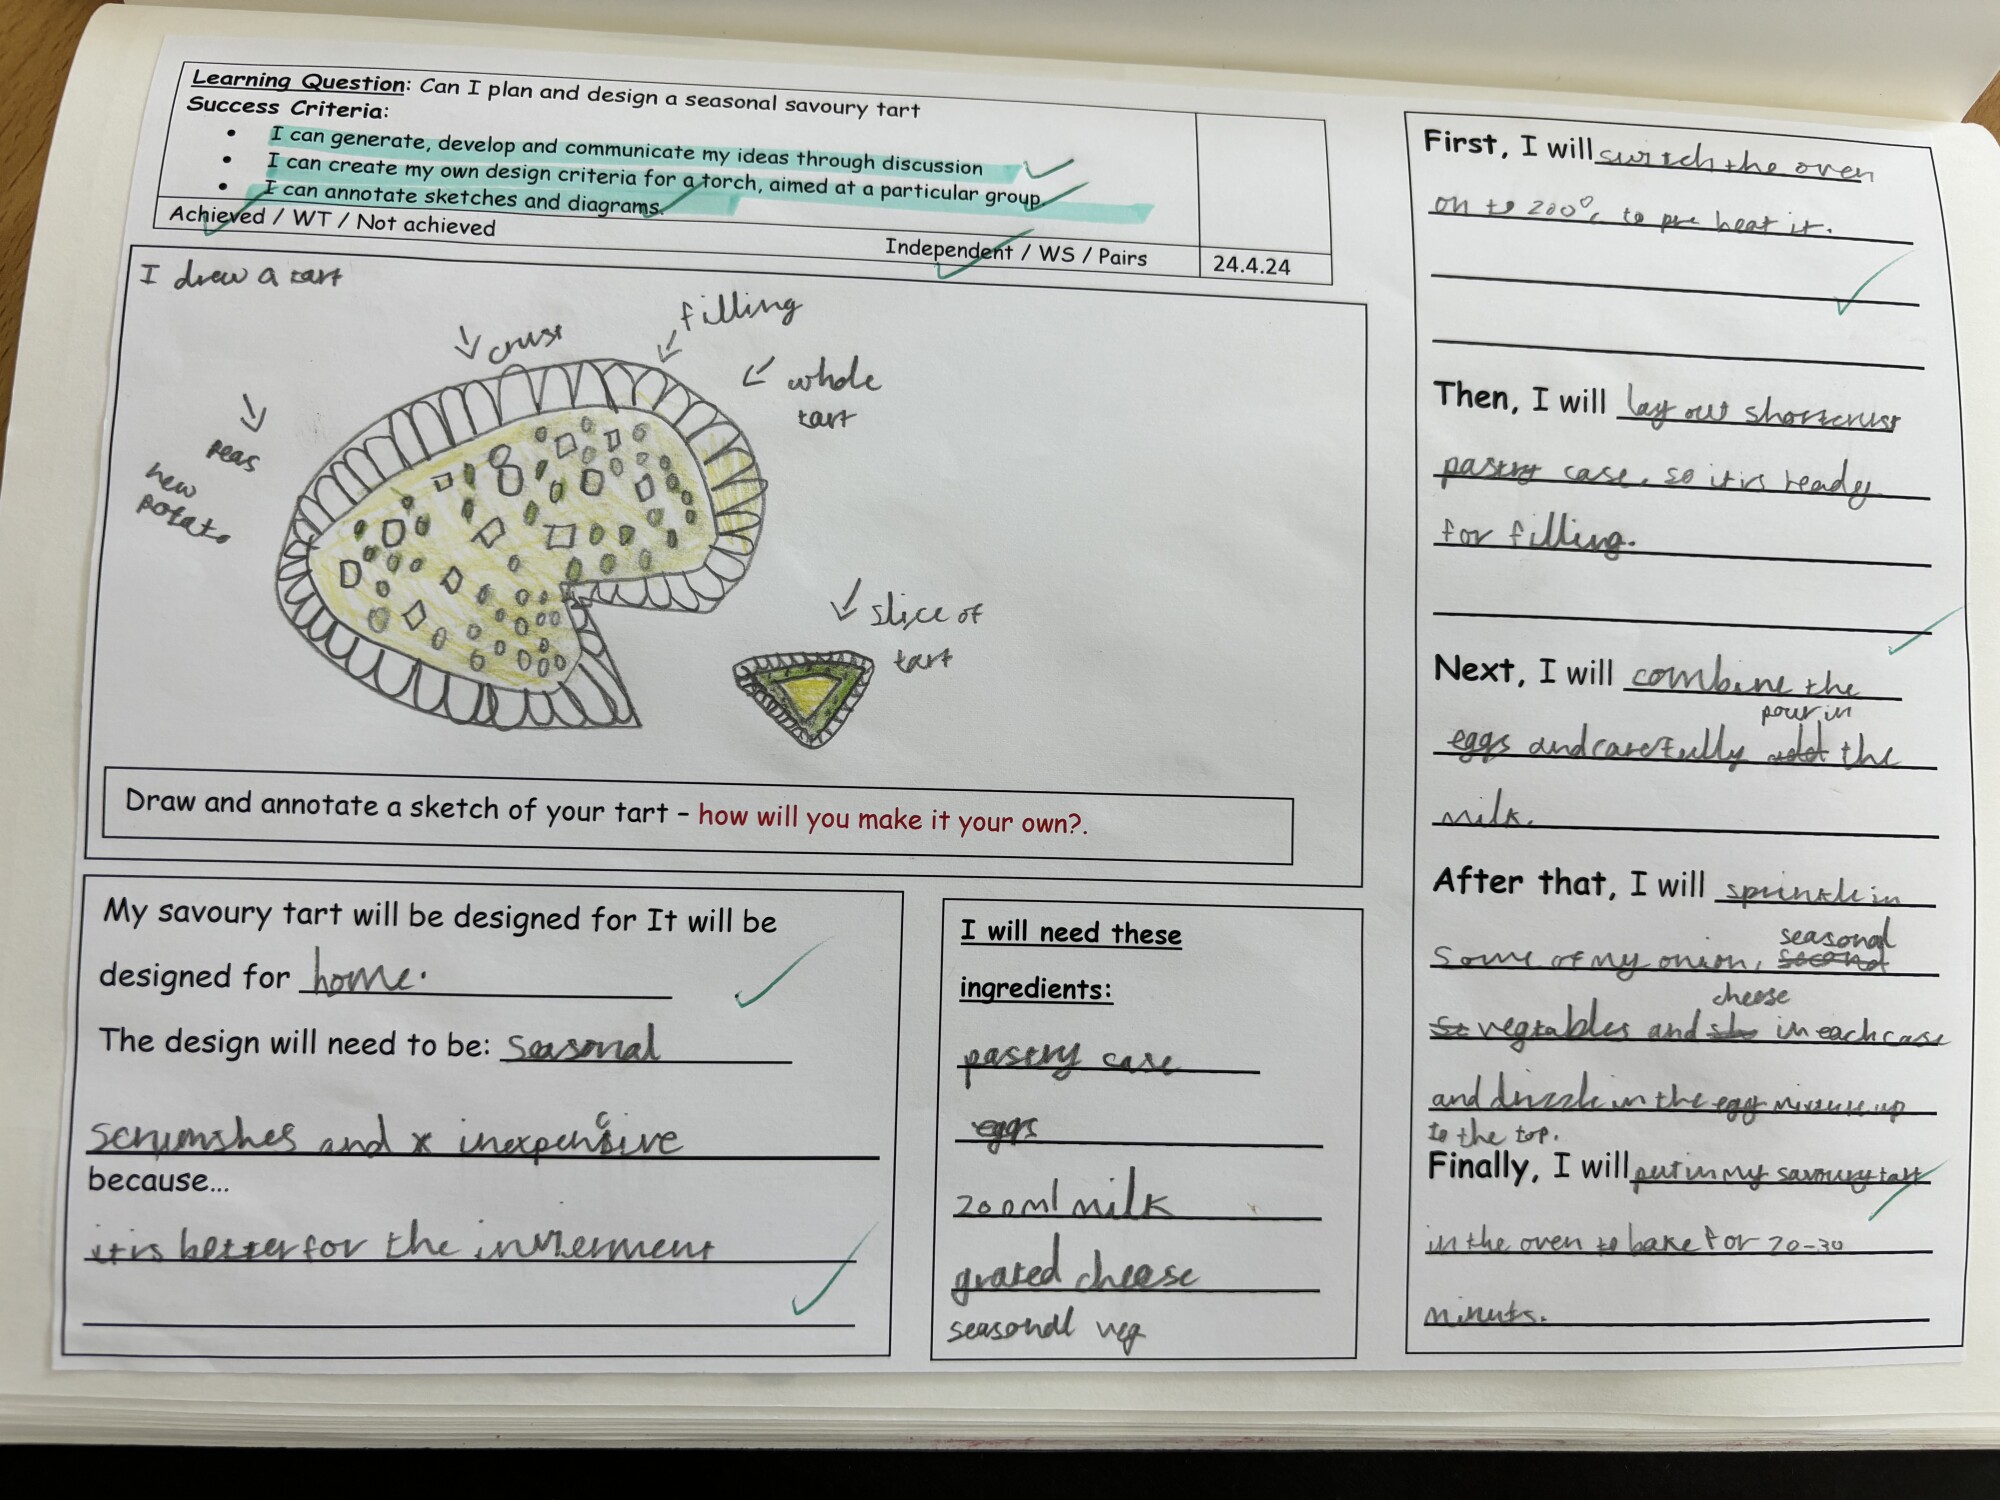 Learning Question: Can I plan and design a seasonal savoury tart
Success Criteria:
• I can generate, develop and communicate my ideas through discussion
• I can create my own design criteria for a torch, aimed at a particular group
• I can annotate sketches and diagrams.
Achieved / WT / Not achieved
Independent / WS / Pairs
24.4.24
I drew a tart
crust
filling
whole
tart
peas
new
potato
slice of
tart
Draw and annotate a sketch of your tart – how will you make it your own?.
My savoury tart will be designed for It will be
designed for home.
The design will need to be: seasonal
scrumshes and x inexpensive
because...
it is better for the
I will need these
ingredients:
pastry case
eggs
200ml milk
grated cheese
seasonal veg
First, I will switch the oven
on to 200°c to pre heat it.
Then, I will lay out shortcrust
pastry case, so it is ready
for filling.
Next, I will combine the
pour in
eggs and carefully add the
milk.
After that, I will sprinkle in
seasonal
some of my onion, second
cheese
vegtables and in each case
and drizzle in the egg mixture up
to the top.
Finally, I will put in my savoury tart
in the oven to bake for 20-30
minuts.